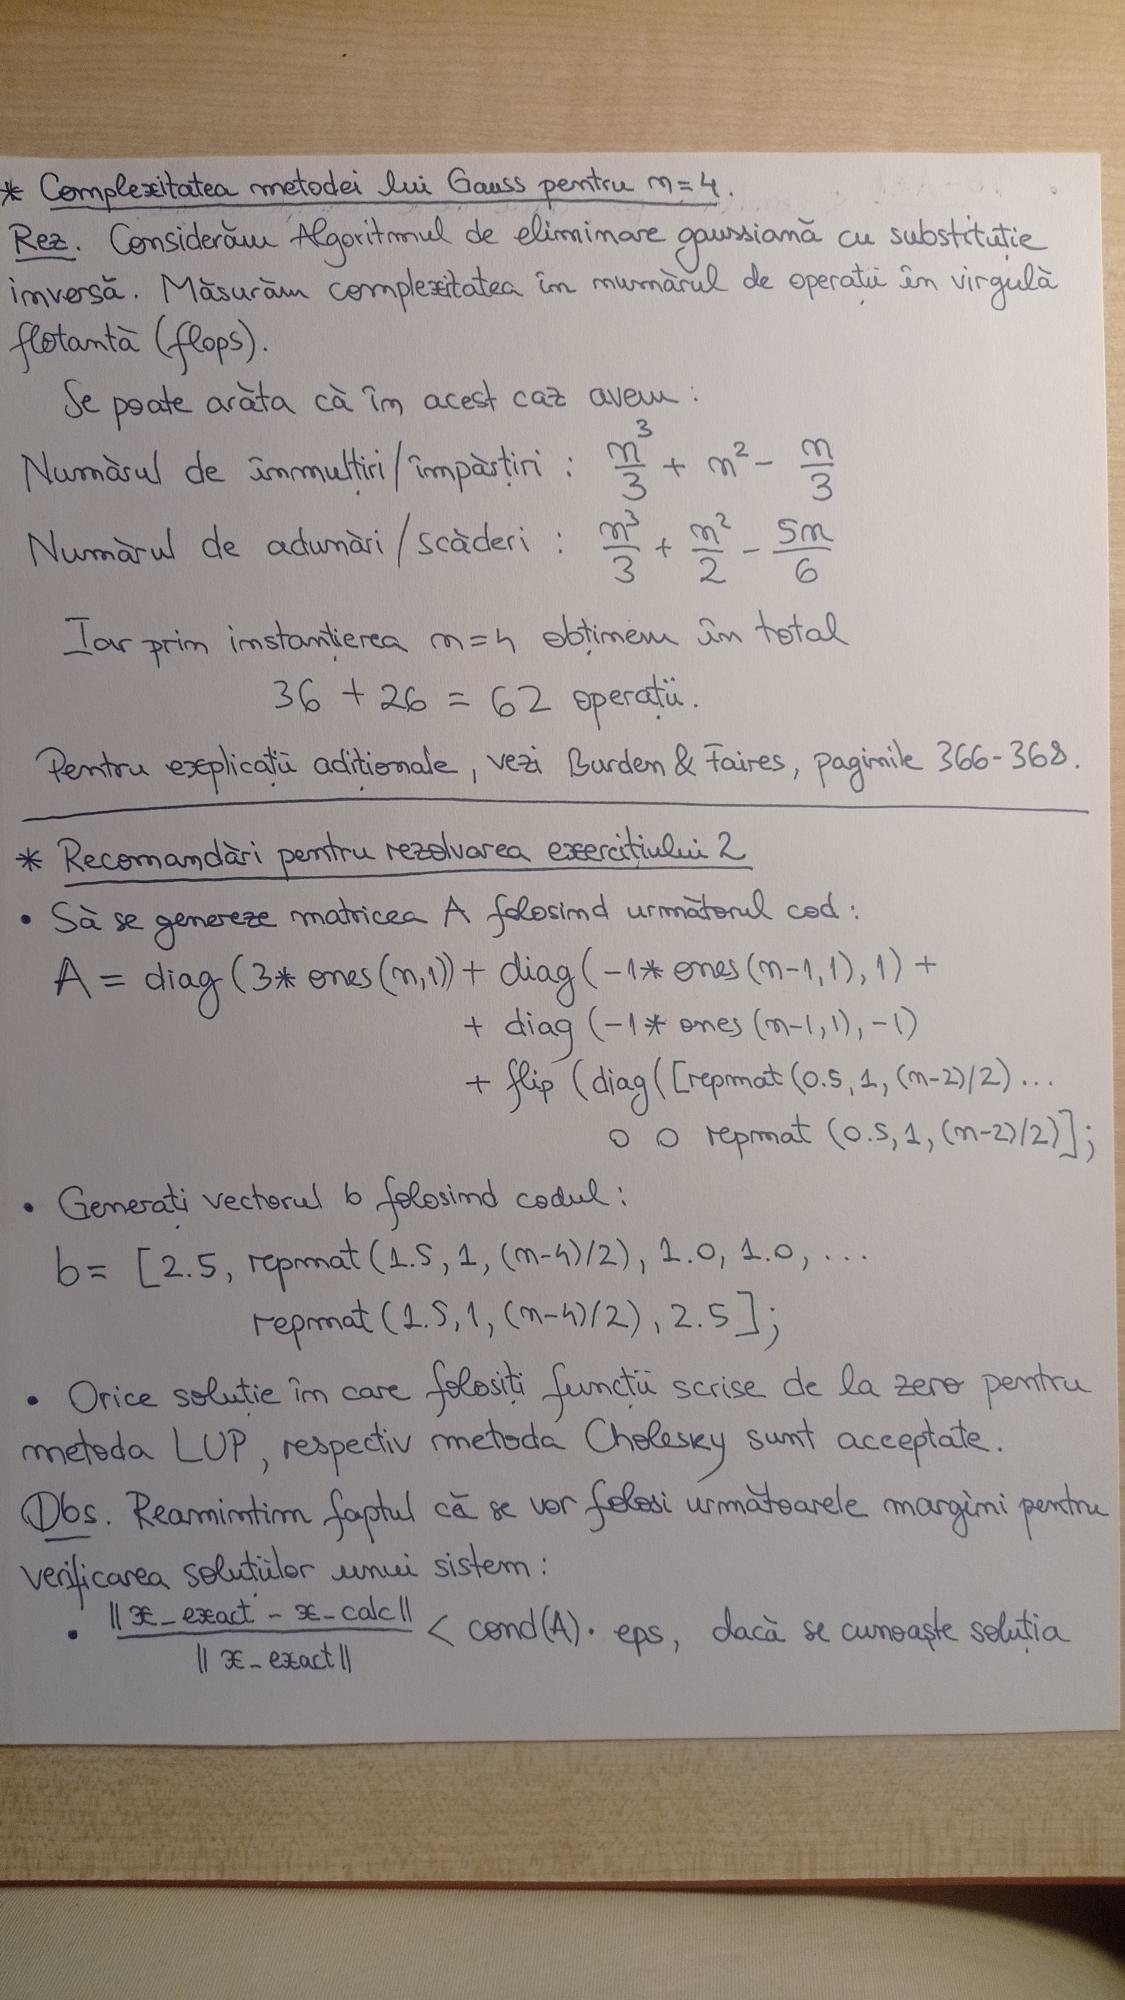 * Complexitatea metodei lui Gauss pentru n=4.
Rez. Considerăm Algoritmul de eliminare gaussiană cu substituție
inversă. Măsurăm complexitatea în numărul de operații în virgulă
flotantă (flops).
Se poate arăta că în acest caz avem:
Numărul de înmulțiri/împărțiri : n³/3 + n² - n/3
Numărul de adunări/scăderi : n³/3 + n²/2 - 5n/6
Iar prin instanțierea n=4 obținem în total
36 + 26 = 62 operații.
Pentru explicații adiționale, vezi Burden & Faires, paginile 366-368.
* Recomandări pentru rezolvarea exercițiului 2
• Să se genereze matricea A folosind următorul cod:
A = diag(3*ones(n,1)) + diag(-1*ones(n-1,1),1) +
+ diag(-1*ones(n-1,1),-1)
+ flip(diag([repmat(0.5,1,(n-2)/2) ...
0 0 repmat(0.5,1,(n-2)/2)];
• Generați vectorul b folosind codul:
b = [2.5, repmat(1.5,1,(n-4)/2), 1.0, 1.0, ...
repmat(1.5,1,(n-4)/2), 2.5];
• Orice soluție în care folosiți funcții scrise de la zero pentru
metoda LUP, respectiv metoda Cholesky sunt acceptate.
Obs. Reamintim faptul că se vor folosi următoarele margini pentru
verificarea soluțiilor unui sistem:
• ||x_exact - x_calc|| / ||x_exact|| < cond(A)· eps, dacă se cunoaște soluția